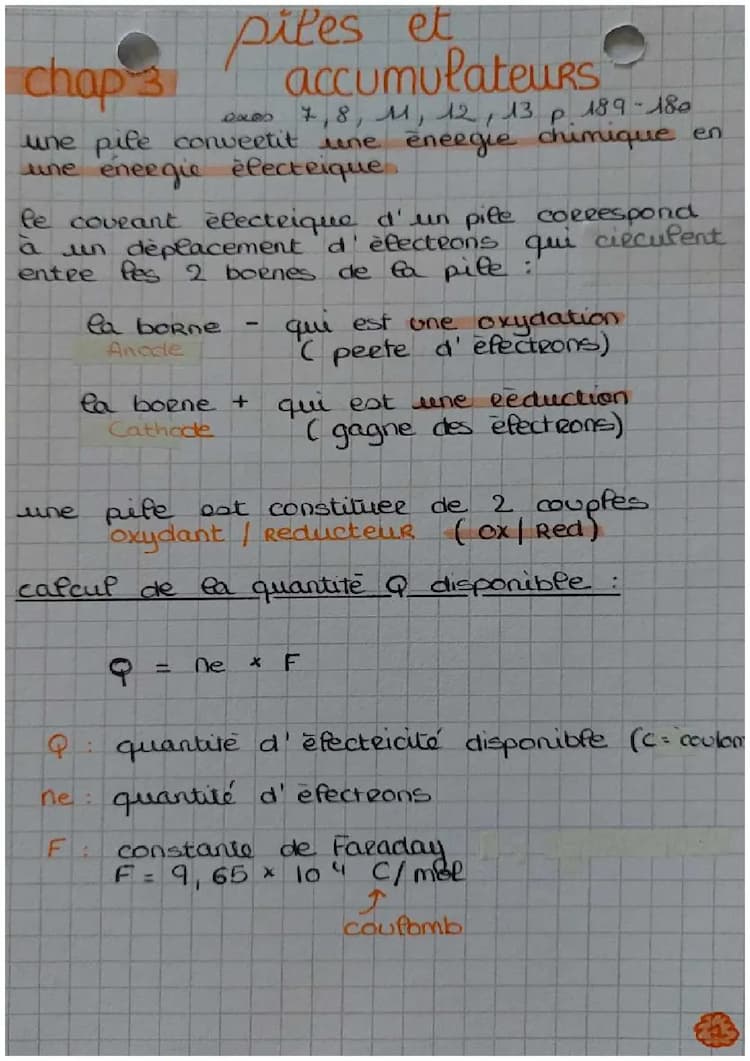 piles et
chap 3 accumulateurs
exos 7, 8, 11, 12, 13 p. 189-180
une pile convertit une énergie chimique en
une énergie électrique.
le courant électrique d'un pile correspond
à un déplacement d'électrons qui circulent
entre les 2 bornes de la pile :
la borne - qui est une oxydation
Anode ( perte d'électrons)
la borne + qui est une réduction
Cathode ( gagne des électrons)
une pile est constituée de 2 couples
oxydant / Réducteur ( ox / Red)
calcul de la quantité Q disponible :
Q = ne × F
Q : quantité d'électricité disponible (C = coulom
ne : quantité d'électrons
F : constante de Faraday
F = 9,65 × 10⁴ C/mol
↑
coulomb